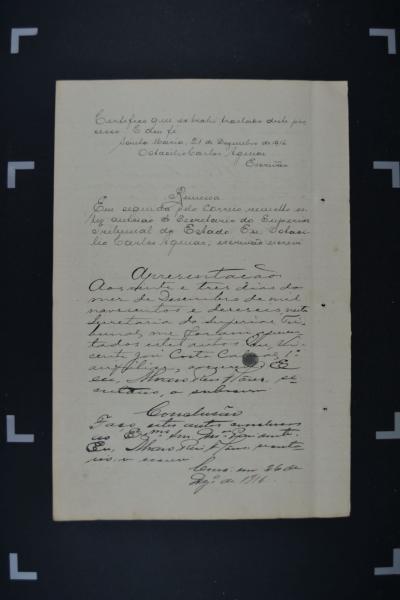 Certifico que extrahi traslado deste pro
cesso. E dou fé
Santa Maria, 21 de Dezembro de 1916
Octacilio Carlos Aguiar
Escrivão
Remessa
Em seguida pelo Correio remetto es
tes autos ao Secretario do Superior
Tribunal do Estado Eu, Octaci
lio Carlos Aguiar, escrivão escrevi
Apresentação
Aos vinte e tres dias do
mez de Dezembro de mil
novecentos e dezeseis, nesta
Secretaria do Superior Tri
bunal, me foram apresen
tados estes autos Eu, Vi
cente José Costa 1º
E
eu, se
cretario, o subscrevi
Conclusão
Faço estes autos conclusos
ao Exmo Snr. Presidente.
Eu, secreta
rio, o escrevi
Clmos. em 26 de
Dezº de 1916.